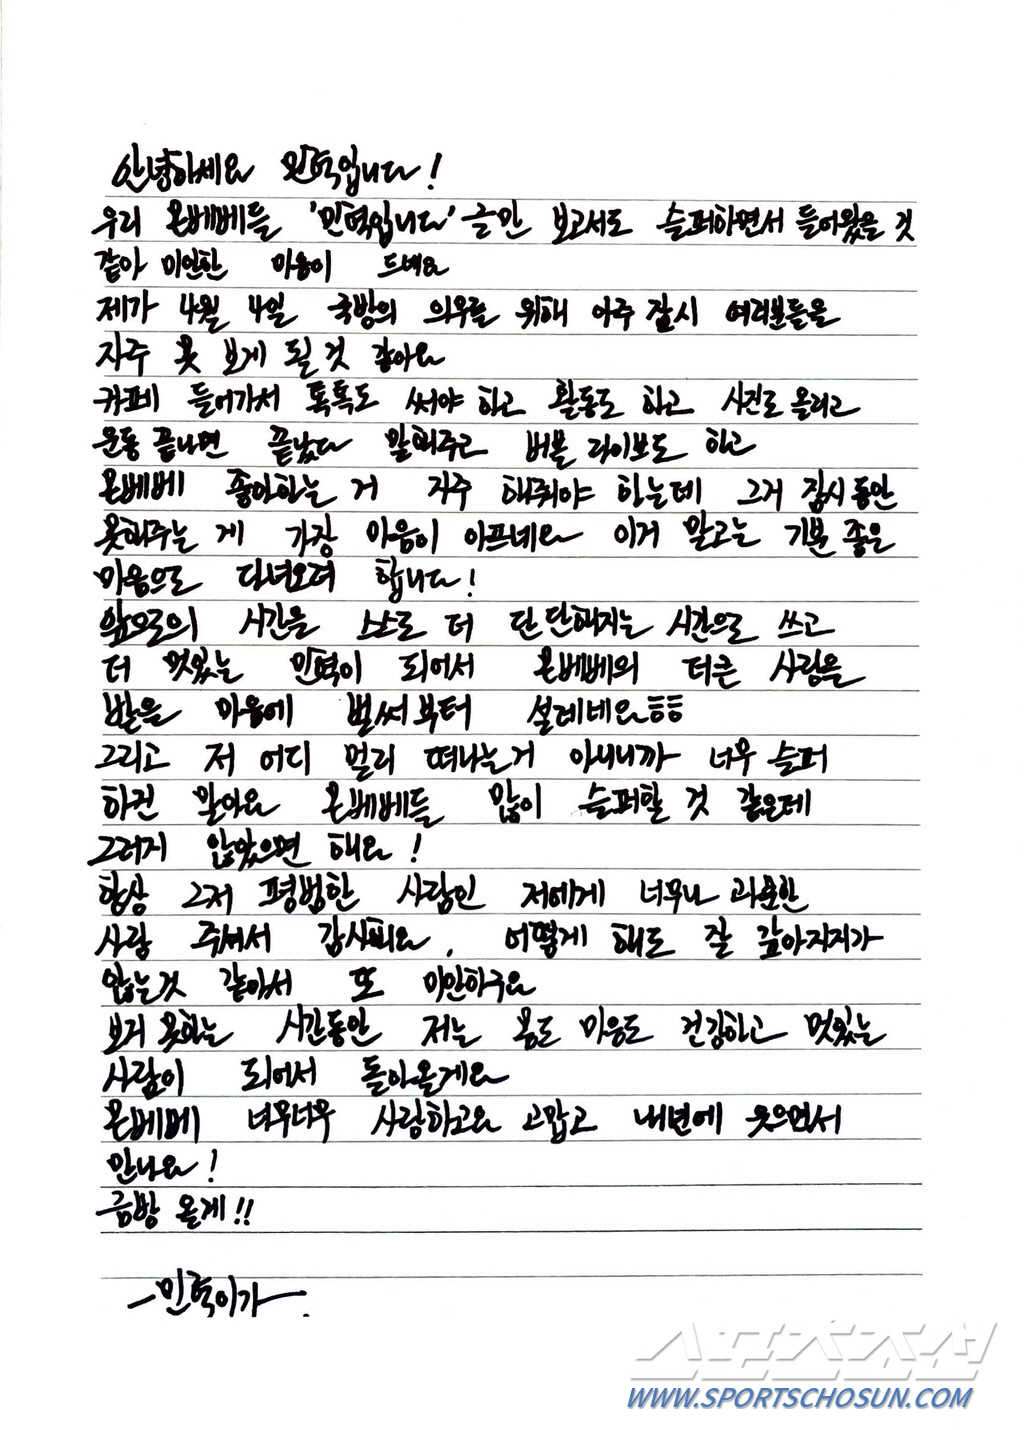 안녕하세요 민혁입니다!
우리 몬베베들 '민혁입니다' 글만 보고서도 슬퍼하면서 들어왔을 것
같아 미안한 마음이 드네요
제가 4월 4일 국방의 의무를 위해 아주 잠시 여러분들을
자주 못 보게 될 것 같아요
카페 들어가서 톡톡도 써야 하고 활동도 하고 사진도 올리고
운동 끝나면 끝났다 말해주고 버블 라이브도 하고
몬베베 좋아하는 거 자주 해줘야 하는데 그거 잠시 동안
못해주는 게 가장 마음이 아프네요 이거 말고는 기분 좋은
마음으로 다녀오려 합니다!
앞으로의 시간을 스스로 더 단단해지는 시간으로 쓰고
더 멋있는 민혁이 되어서 몬베베의 더큰 사랑을
받을 마음에 벌써부터 설레네요ㅎㅎ
그리고 저 어디 멀리 떠나는거 아니니까 너무 슬퍼
하진 말아요 몬베베들 많이 슬퍼할 것 같은데
그러지 않았으면 해요!
항상 그저 평범한 사람인 저에게 너무나 과분한
사랑 주셔서 감사해요, 어떻게 해도 잘 갚아지지가
않는것 같아서 또 미안하구요
보지 못하는 시간동안 저는 몸도 마음도 건강하고 멋있는
사람이 되어서 돌아올게요
몬베베 너무너무 사랑하고요 고맙고 내년에 웃으면서
만나요!
금방 올게!!
-민혁이가-.
스포츠조선
WWW.SPORTSCHOSUN.COM